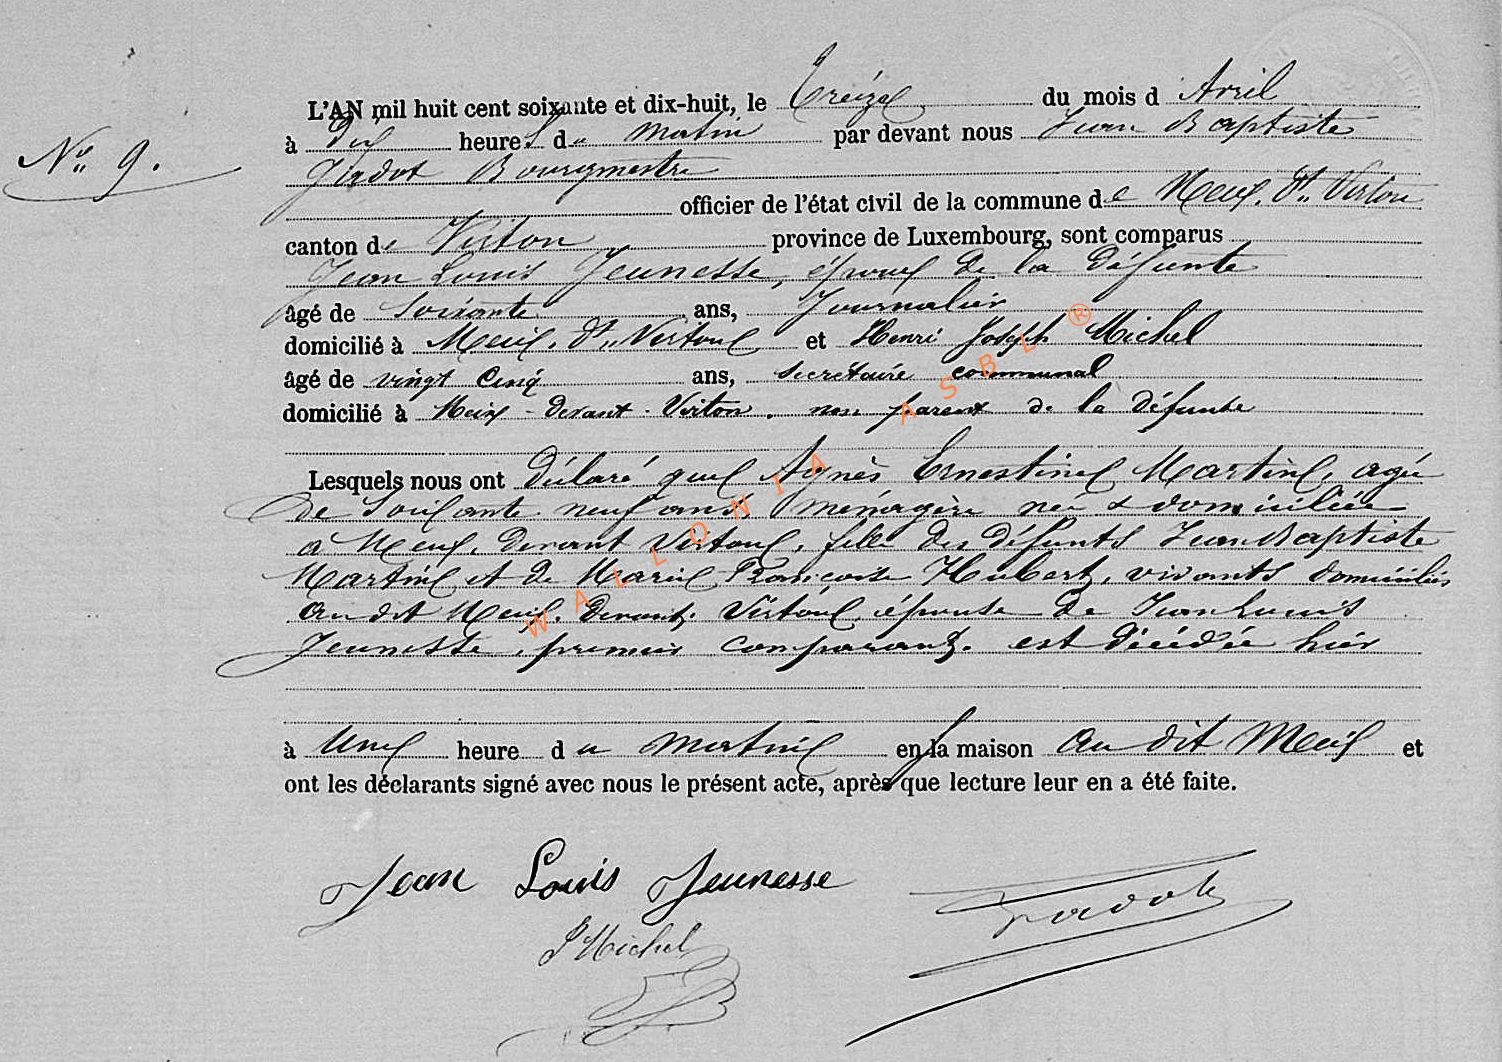 L'AN mil huit cent soixante et dix-huit, le Treize du mois d Avril
N° 9.
à Dix heures du matin par devant nous Jean Baptiste
Jadot Bourgmestre
officier de l'état civil de la commune de Meix dt Virton
canton de Virton province de Luxembourg, sont comparus
Jean Louis Jeunesse, époux de la défunte
âgé de soixante ans, Journalier
domicilié à Meix, dt Virton et Henri Joseph Michel
âgé de vingt cinq ans, secrétaire communal
domicilié à Meix-devant-Virton, non parent de la défunte
Lesquels nous ont déclaré que Agnès Ernestine Martin, agée
de soixante neuf ans, ménagère née & domiciliée
à Meix, devant Virton, fille des défunts Jean Baptiste
Martin et de Marie Françoise Hubert, vivants domiciliés
au dit Meix, devant, Virton, épouse de Jean Louis
Jeunesse, premier comparant, est décédée hier
à Une heure du matin en la maison au dit Meix et
ont les déclarants signé avec nous le présent acte, après que lecture leur en a été faite.
Jean Louis Jeunesse
Jadot
Michel
WALLONIA ASBL ®